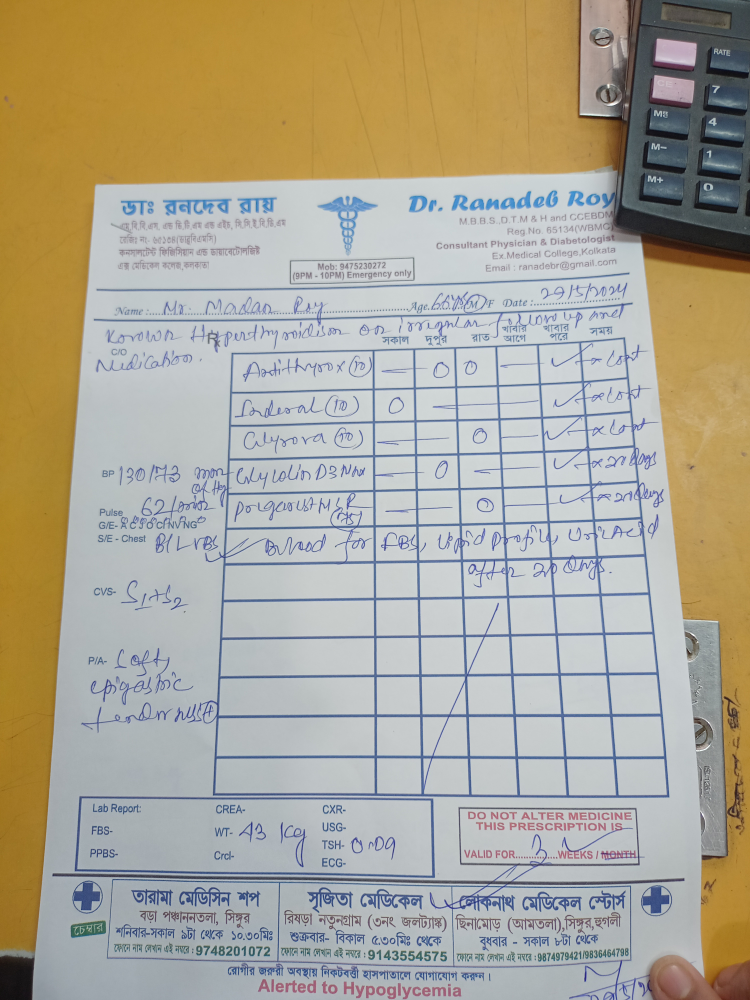 RATE
7
M8
4
M-
1
M+
0
ডাঃ রনদেব রায়
এম,বি,বি,এস, এন্ড ডি,টি,এম এন্ড এইচ, সি,সি,ই,বি,ডি,এম
রেজিঃ নং- ৬৫১৩৪(ডাব্লুবিএমসি)
কনসালটেন্ট ফিজিসিয়ান এন্ড ডায়াবেটোলজিষ্ট
এক্স মেডিকেল কলেজ,কলকাতা
Mob: 9475230272
(9PM - 10PM) Emergency only
Dr. Ranadeb Roy
M.B.B.S.,D.T.M & H and CCEBDM
Reg.No. 65134(WBMC)
Consultant Physician & Diabetologist
Ex.Medical College,Kolkata
Email : ranadebr@gmail.com
Name :.... Mr. Madan Roy Age. 66 M/F Date : 29/5/2024
Known Hyperthyroidism on irregular follow up and
C/O
Medication.
সকাল দুপুর রাত খাবার আগে খাবার পরে সময়
Antithyrox (10) — O O — ✓ x Cont
Inderal (10) O — ✓ x Cont
(10) — O — ✓ x Cont
BP 130/73 mm of Hg
D3 Max — O — ✓ x 20 days
Pulse 62/min
— O ✓ x 20 days
G/E-
S/E - Chest B/L VBS
✓ Blood for FBS, Lipid Profile, Uric Acid
after 20 days.
CVS- S1+S2
P/A- Soft,
epigastric
tenderness +
Lab Report:
FBS-
PPBS-
CREA-
WT- 43 kg
Crcl-
CXR-
USG-
TSH- 0.09
ECG-
DO NOT ALTER MEDICINE
THIS PRESCRIPTION IS
VALID FOR.....3.....WEEKS / MONTH
চেম্বার
তারামা মেডিসিন শপ
বড়া পঞ্চাননতলা, সিঙ্গুর
শনিবার-সকাল ৯টা থেকে ১০.৩০মিঃ
ফোনে নাম লেখান এই নম্বরে : 9748201072
সুজিতা মেডিকেল
রিষড়া নতুনগ্রাম (৩নং জলট্যাঙ্ক)
শুক্রবার- বিকাল ৫.৩০মিঃ থেকে
ফোনে নাম লেখান এই নম্বরে : 9143554575
লোকনাথ মেডিকেল স্টোর্স
ছিনামোড় (আমতলা),সিঙ্গুর,হুগলী
বুধবার - সকাল ৮টা থেকে
ফোনে নাম লেখান এই নম্বরে :9874979421/9836464798
রোগীর জরুরী অবস্থায় নিকটবর্ত্তী হাসপাতালে যোগাযোগ করুন ।
Alerted to Hypoglycemia